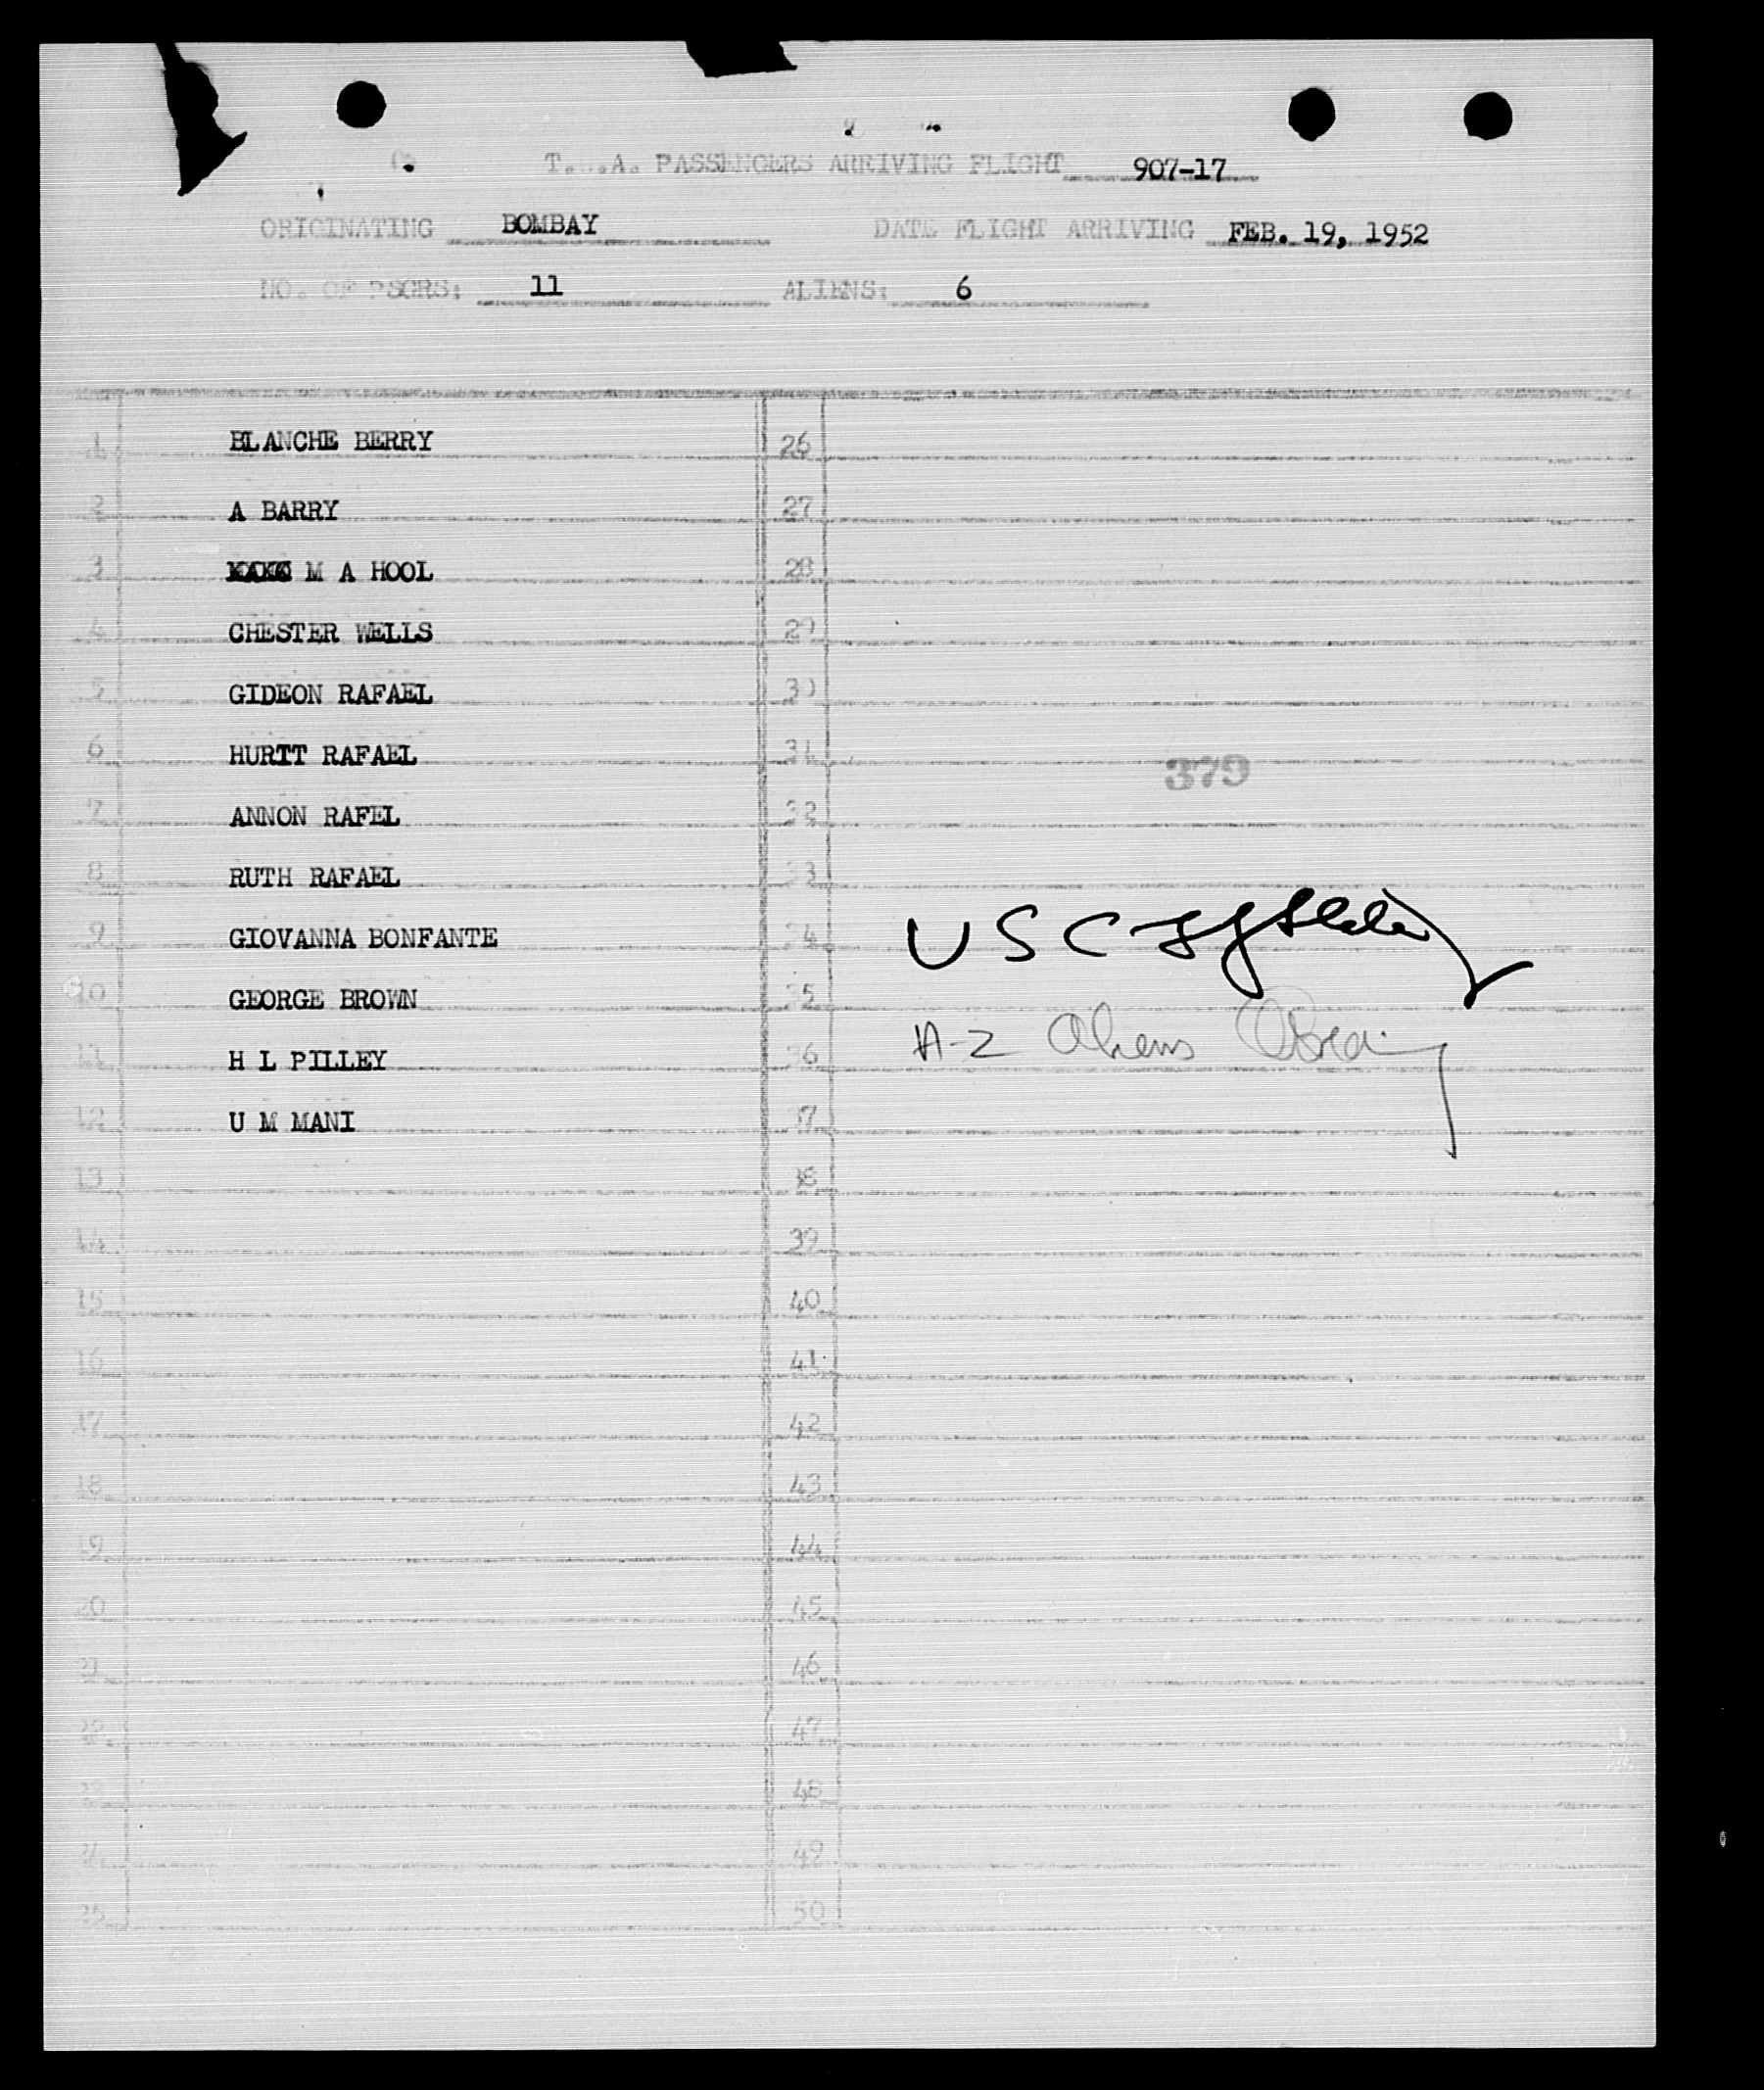 T. .A. PASSENGERS ARRIVING FLIGHT 907-17
ORIGINATING BOMBAY DATE FLIGHT ARRIVING FEB. 19, 1952
NO. OF PSGRS: 11 ALIENS: 6
1 BLANCHE BERRY 26
2 A BARRY 27
3 M A HOOL 28
4 CHESTER WELLS 29
5 GIDEON RAFAEL 30
6 HURTT RAFAEL 31
379
7 ANNON RAFEL 32
8 RUTH RAFAEL 33
9 GIOVANNA BONFANTE 34 U S C
10 GEORGE BROWN 35
11 H L PILLEY 36 A-2 Aliens
12 U M MANI 37
13 38
14 39
15 40
16 41
17 42
18 43
19 44
20 45
21 46
22 47
23 48
24 49
25 50